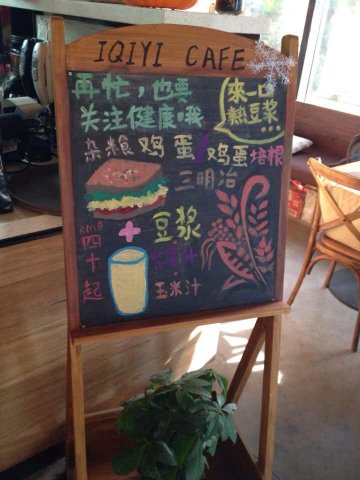 IQIYI CAFE
再忙，也要
关注健康哦
來一口
熱豆浆...
杂粮鸡蛋/鸡蛋培根
三明治
+
豆浆
玉米汁
RMB
四十起